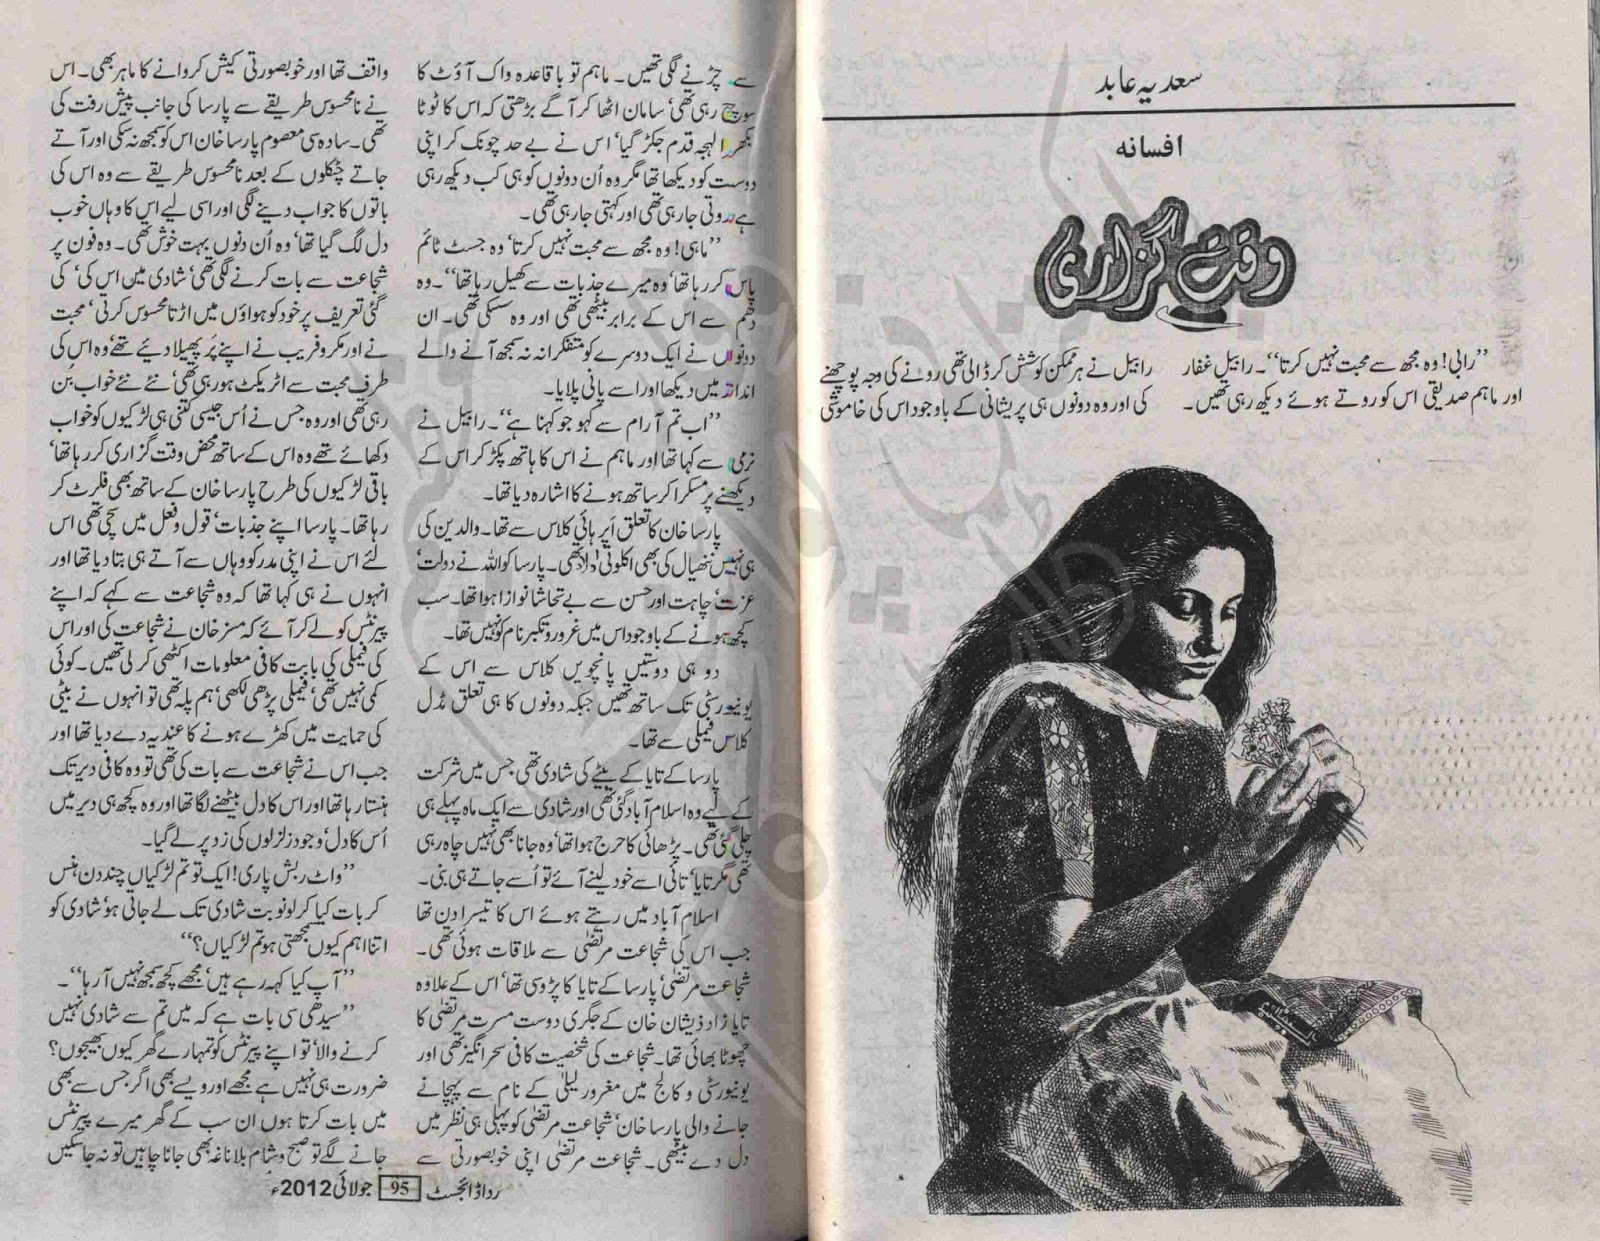 سعدیہ عابد
افسانہ
وقت گزاری
”رابی! وہ مجھ سے محبت نہیں کرتا“۔ رابیل غفار
اور ماہم صدیقی اس کو روتے ہوئے دیکھ رہی تھیں۔
رابیل نے ہر ممکن کوشش کر ڈالی تھی رونے کی وجہ پوچھنے
کی اور وہ دونوں ہی پریشانی کے باوجود اس کی خاموشی
سے چڑنے لگی تھیں۔ ماہم تو باقاعدہ واک آؤٹ کا
سوچ رہی تھی‘ سامان اٹھا کر آگے بڑھتی کہ اس کا ٹوٹا
بکھرا لہجہ قدم جکڑ گیا‘ اس نے بے حد چونک کر اپنی
دوست کو دیکھا تھا مگر وہ اُن دونوں کو ہی کب دیکھ رہی
ہے روتی جا رہی تھی اور کہتی جا رہی تھی۔
”ماہی! وہ مجھ سے محبت نہیں کرتا‘ وہ جسٹ ٹائم
پاس کر رہا تھا‘ وہ میرے جذبات سے کھیل رہا تھا“۔ وہ
دھم سے اس کے برابر بیٹھی تھی اور وہ سسکی تھی۔ ان
دونوں نے ایک دوسرے کو متفکرانہ نہ سمجھ آنے والے
انداز میں دیکھا اور اسے پانی پلایا۔
”اب تم آرام سے کہو جو کہنا ہے“۔ رابیل نے
نرمی سے کہا تھا اور ماہم نے اس کا ہاتھ پکڑ کر اس کے
دیکھنے پر مسکرا کر ساتھ ہونے کا اشارہ دیا تھا۔
پارسا خان کا تعلق اَپر ہائی کلاس سے تھا۔ والدین کی
ہی نہیں ننھیال کی بھی اکلوتی لاڈلی تھی۔ پارسا کو اللہ نے دولت‘
عزت‘ چاہت اور حسن سے بے تحاشا نوازا ہوا تھا۔ سب
کچھ ہونے کے باوجود اس میں غرور و تکبر نام کو نہیں تھا۔
دو ہی دوستیں پانچویں کلاس سے اس کے
یونیورسٹی تک ساتھ تھیں جبکہ دونوں کا ہی تعلق مڈل
کلاس فیملی سے تھا۔
پارسا کے تایا کے بیٹے کی شادی تھی جس میں شرکت
کے لیے وہ اسلام آباد گئی تھی اور شادی سے ایک ماہ پہلے ہی
چلی گئی تھی۔ پڑھائی کا حرج ہوا تھا‘ وہ جانا بھی نہیں چاہ رہی
تھی مگر تایا‘ تائی اسے خود لینے آئے تو اُسے جاتے ہی بنی۔
اسلام آباد میں رہتے ہوئے اس کا تیسرا دن تھا
جب اس کی شجاعت مرتضیٰ سے ملاقات ہوئی تھی۔
شجاعت مرتضیٰ‘ پارسا کے تایا کا پڑوسی تھا‘ اس کے علاوہ
تایا زاد ذیشان خان کے جگری دوست مسرت مرتضیٰ کا
چھوٹا بھائی تھا۔ شجاعت کی شخصیت کافی سحر انگیز تھی اور
یونیورسٹی و کالج میں مغرور لیلیٰ کے نام سے پہچانے
جانے والی پارسا خان‘ شجاعت مرتضیٰ کو پہلی ہی نظر میں
دل دے بیٹھی۔ شجاعت مرتضیٰ اپنی خوبصورتی سے
واقف تھا اور خوبصورتی کیش کروانے کا ماہر بھی۔ اس
نے نامحسوس طریقے سے پارسا کی جانب پیش رفت کی
تھی۔ سادہ سی معصوم پارسا خان اس کو سمجھ نہ سکی اور آتے
جاتے چٹکلوں کے بعد نامحسوس طریقے سے وہ اس کی
باتوں کا جواب دینے لگی اور اسی لیے اس کا وہاں خوب
دل لگ گیا تھا‘ وہ اُن دنوں بہت خوش تھی۔ وہ فون پر
شجاعت سے بات کرنے لگی تھی‘ شادی میں اس کی‘ کی
گئی تعریف پر خود کو ہواؤں میں اڑتا محسوس کرتی‘ محبت
نے اور مکر و فریب نے اپنے پَر پھیلا دیئے تھے‘ وہ اس کی
طرف محبت سے اٹریکٹ ہو رہی تھی‘ نئے نئے خواب بُن
رہی تھی اور وہ جس نے اُس جیسی کتنی ہی لڑکیوں کو خواب
دکھائے تھے وہ اس کے ساتھ محض وقت گزاری کر رہا تھا‘
باقی لڑکیوں کی طرح پارسا خان کے ساتھ بھی فلرٹ کر
رہا تھا۔ پارسا اپنے جذبات‘ قول و فعل میں سچی تھی اس
لئے اس نے اپنی مدر کو وہاں سے آتے ہی بتا دیا تھا اور
انہوں نے ہی کہا تھا کہ وہ شجاعت سے کہے کہ اپنے
پیرنٹس کو لے کر آئے کہ مسز خان نے شجاعت کی اور اس
کی فیملی کی بابت کافی معلومات اکٹھی کر لی تھیں۔ کوئی
کمی نہیں تھی‘ فیملی پڑھی لکھی‘ ہم پلہ تھی تو انہوں نے بیٹی
کی حمایت میں کھڑے ہونے کا عندیہ دے دیا تھا اور
جب اس نے شجاعت سے بات کی تھی تو وہ کافی دیر تک
ہنستا رہا تھا اور اس کا دل بیٹھنے لگا تھا اور وہ کچھ ہی دیر میں
اُس کا دل‘ وجود زلزلوں کی زد پر لے گیا۔
”واٹ ربش پاری! ایک تو تم لڑکیاں چند دن ہنس
کر بات کیا کر لو نوبت شادی تک لے جاتی ہو‘ شادی کو
اتنا اہم کیوں سمجھتی ہو تم لڑکیاں؟“
”آپ کیا کہہ رہے ہیں‘ مجھے کچھ سمجھ نہیں آ رہا“۔
”سیدھی سی بات ہے کہ میں تم سے شادی نہیں
کرنے والا‘ تو اپنے پیرنٹس کو تمہارے گھر کیوں بھیجوں؟
ضرورت ہی نہیں ہے مجھے اور ویسے بھی اگر جس سے بھی
میں بات کرتا ہوں ان سب کے گھر میرے پیرنٹس
جانے لگے تو صبح و شام بلا ناغہ بھی جانا چاہیں تو نہ جا سکیں
ردا ڈائجسٹ 95 جولائی 2012ء